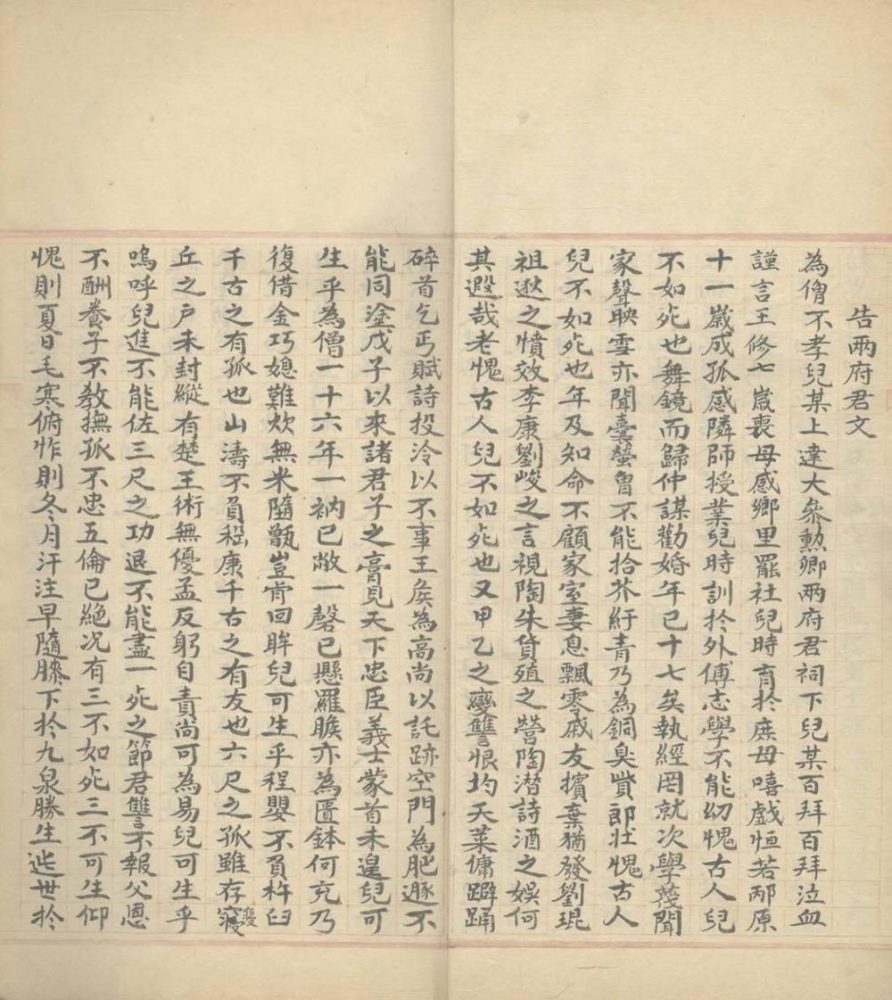 告兩府君文
為僧不孝兒某上達大叅勲卿兩府君祠下兒某百拜百拜泣血
謹言王修七歲喪母感鄉里罷社兒時育於庶母嘻戲恒若邴原
十一歲成孤感隣師授業兒時訓於外傅志學不能幼愧古人兒
不如死也舞鏡而歸仲謀勸婚年已十七矣執經罔就次學蔑聞
家聲映雪亦聞囊螢曾不能拾芥紆青乃為銅臭貲郎壯愧古人
兒不如死也年及知命不顧家室妻息飄零戚友擯棄猶發劉琨
祖逖之憤效李康劉峻之言視陶朱貨殖之營陶潛詩酒之娛何
其遐哉老愧古人兒不如死也又甲乙之變讐恨均天菜傭躃踊
碎首乞丐賦詩投泠以不事王矦為高尚以託跡空門為肥遯不
能同塗戊子以來諸君子之膏見天下忠臣義士蒙首未遑兒可
生乎為僧一十六年一衲已敝一磬已懸羅睺亦為匱鉢何充乃
復借金巧媳難炊無米隨甑豈肯回眸兒可生乎程嬰不負杵臼
千古之有孤也山濤不負嵇康千古之有友也六尺之孤雖存窀
丘之戶未封縱有楚王術無優孟反躬自責尚可為易兒可生乎
嗚呼兒進不能佐三尺之功退不能盡一死之節君讐不報父恩
不酬養子不教撫孤不忠五倫已絶况有三不如死三不可生仰
愧則夏日毛寒俯怍則冬月汗注早隨膝下於九泉勝生逆世於